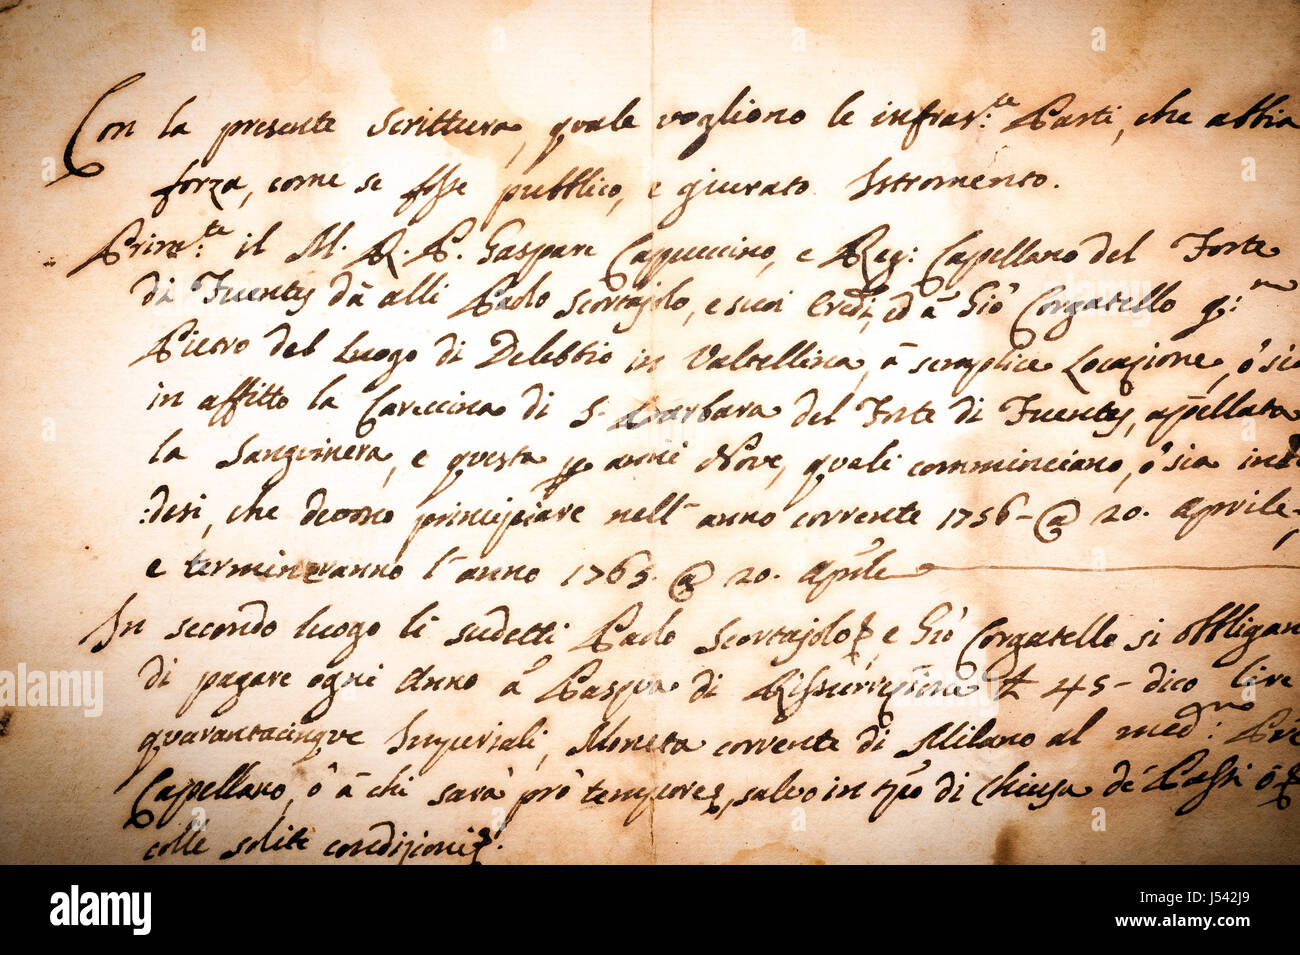 Con la presente Scrittura, quale vogliono le infras.te Parti, che abbia
forza, come se fosse pubblico, e giurato Istromento.
Prim.te il M. R. P. Gaspare Cappuccino, e Reg: Capellano del Forte
di Fuentes dà alli Paolo Scortajolo, e suoi Eredi, ed à Gio' Corgatello q:m
Pietro del luogo di Delebbio in Valtellina, à semplice Locazione, ò sia
in affitto la Careccina di S. Barbara del Forte di Fuentes, appellata
la Sanguinera, e questa p anni Nove, quali comminciano, ò sia
:desi, che devono principiare nell' anno corrente 1756 - @ 20. Aprile,
e termineranno l' anno 1765. @ 20. Aprile
In secondo luogo li sudetti Paolo Scortajolo, e Gio' Corgatello si obbligan
di pagare ogni Anno à Pasqua di Rissurrezione £ 45 - dico lire
quarantacinque Imperiali, Moneta corrente di Milano al med:mo
Capellano, ò à chi sarà prò tempore, salvo in di Chiusa de' Passi ò
colle solite condizioni.
alamy
Image ID: J542J9
www.alamy.com